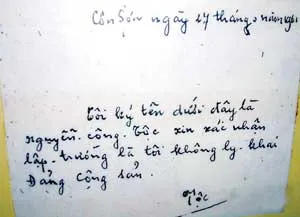 Côn Sơn ngày 27 tháng 2 năm
Tôi ký tên dưới đây là
nguyễn. công. Tộc xin xác nhận
lập-trường là tôi không ly-khai
Đảng cộng sản.
Tộc